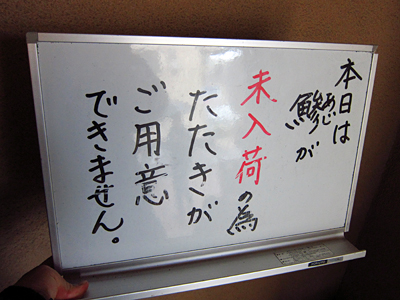 本日は
鯵が
あじ
未入荷の為
たたきが
ご用意
できません。